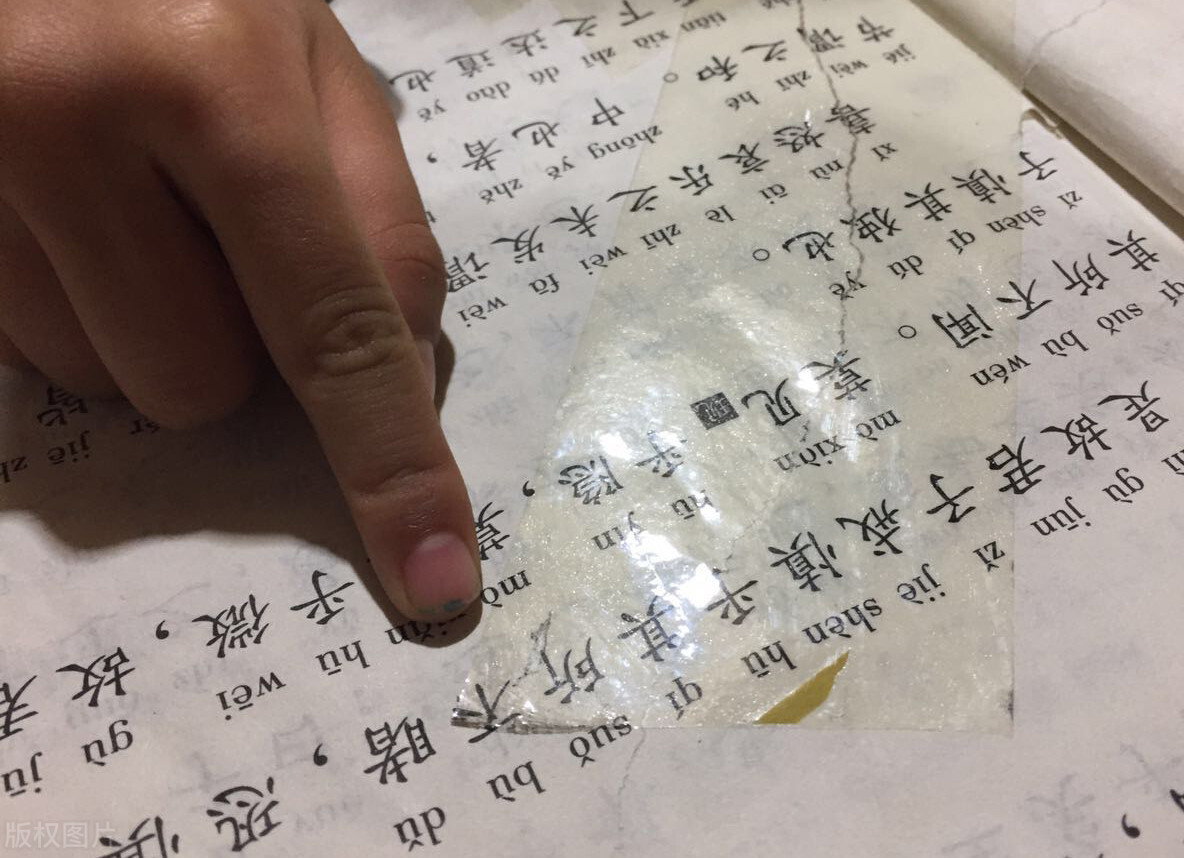 gù jūn zǐ jiè shèn hū qí suǒ bù dǔ
是故君子戒慎乎其所不睹，恐惧
qí suǒ bù wén mò xiàn hū yǐn mò xiǎn hū wēi gù jūn
其所不闻。莫见现乎隐，莫乎微，故君
zǐ shèn qí dú yě
子慎其独也。
xǐ nù āi lè zhī wèi fā wèi jiē
喜怒哀乐之未发谓皆
jié wèi zhī hé zhōng yě zhě
节谓之和。中也者，
tiān xià zhī dá dào yě
下之达道也
版权图片